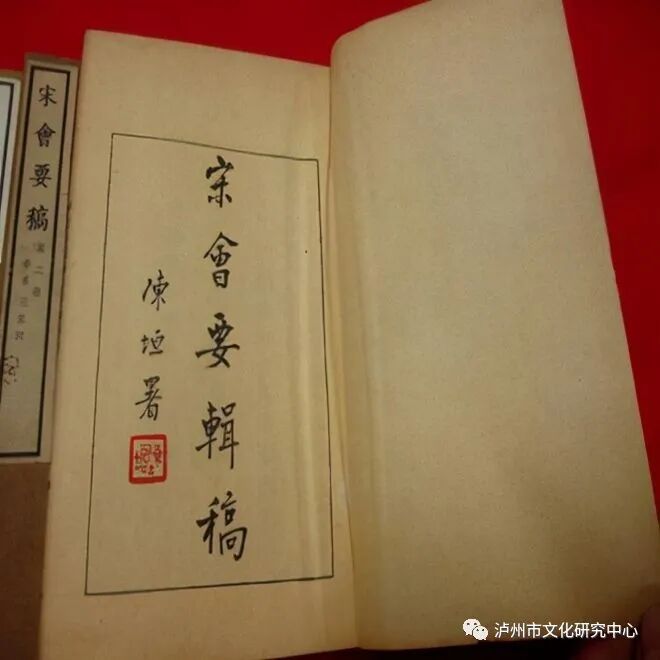 宋會要輯稿
陳垣署
宋會要稿
泸州市文化研究中心